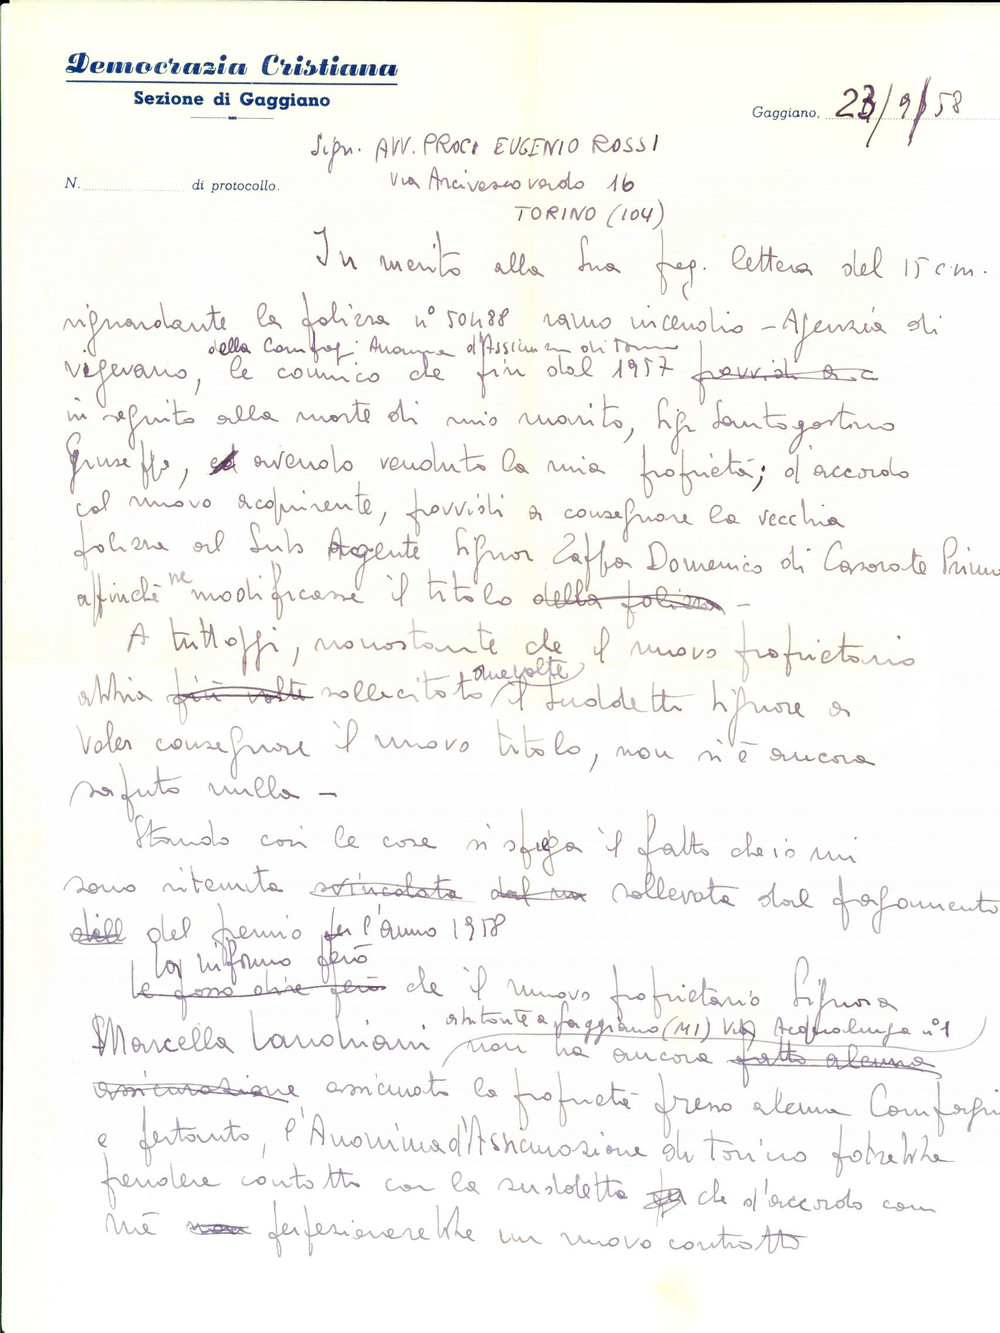 Democrazia Cristiana
Sezione di Gaggiano
Gaggiano, 23/9/58
Sign. AVV. PROC. EUGENIO ROSSI
N. di protocollo.
Via Arcivescovado 16
TORINO (104)
In merito alla Sua preg. lettera del 15 c.m.
riguardante la polizza n° 50488 ramo incendio - Agenzia di
della Compag. Anonima d'Assicuraz. di Torino
Vigevano, le comunico che fin dal 1957 provvidi a
in seguito alla morte di mio marito, Sig. Santagostino
Giuseppe, ed avendo venduto la mia proprietà; d'accordo
col nuovo acquirente, provvidi a consegnare la vecchia
polizza al Sub Agente Signor Zappa Domenico di Casorate Primo
affinchè ne modificasse il titolo della polizza -
A tutt'oggi, nonostante che il nuovo proprietario
abbia più volte sollecitato due volte il suddetto Signore a
voler consegnare il nuovo titolo, non si è ancora
saputo nulla -
Stando così le cose si spiega il fatto che io mi
sono ritenuta svincolata dal sollevata dal pagamento
dell del premio per l'anno 1958
La informo però
le posso dire però che il nuovo proprietario Signora
abitante a Gaggiano (MI) Via Acqualunga n° 1
Marcella Landriani non ha ancora fatto alcuna
assicurazione assicurato la proprietà presso alcuna Compagni
e pertanto, l'Anonima d'Assicurazione di Torino potrebbe
prendere contatto con la suddetta che d'accordo con
me perfezionerebbe un nuovo contratto